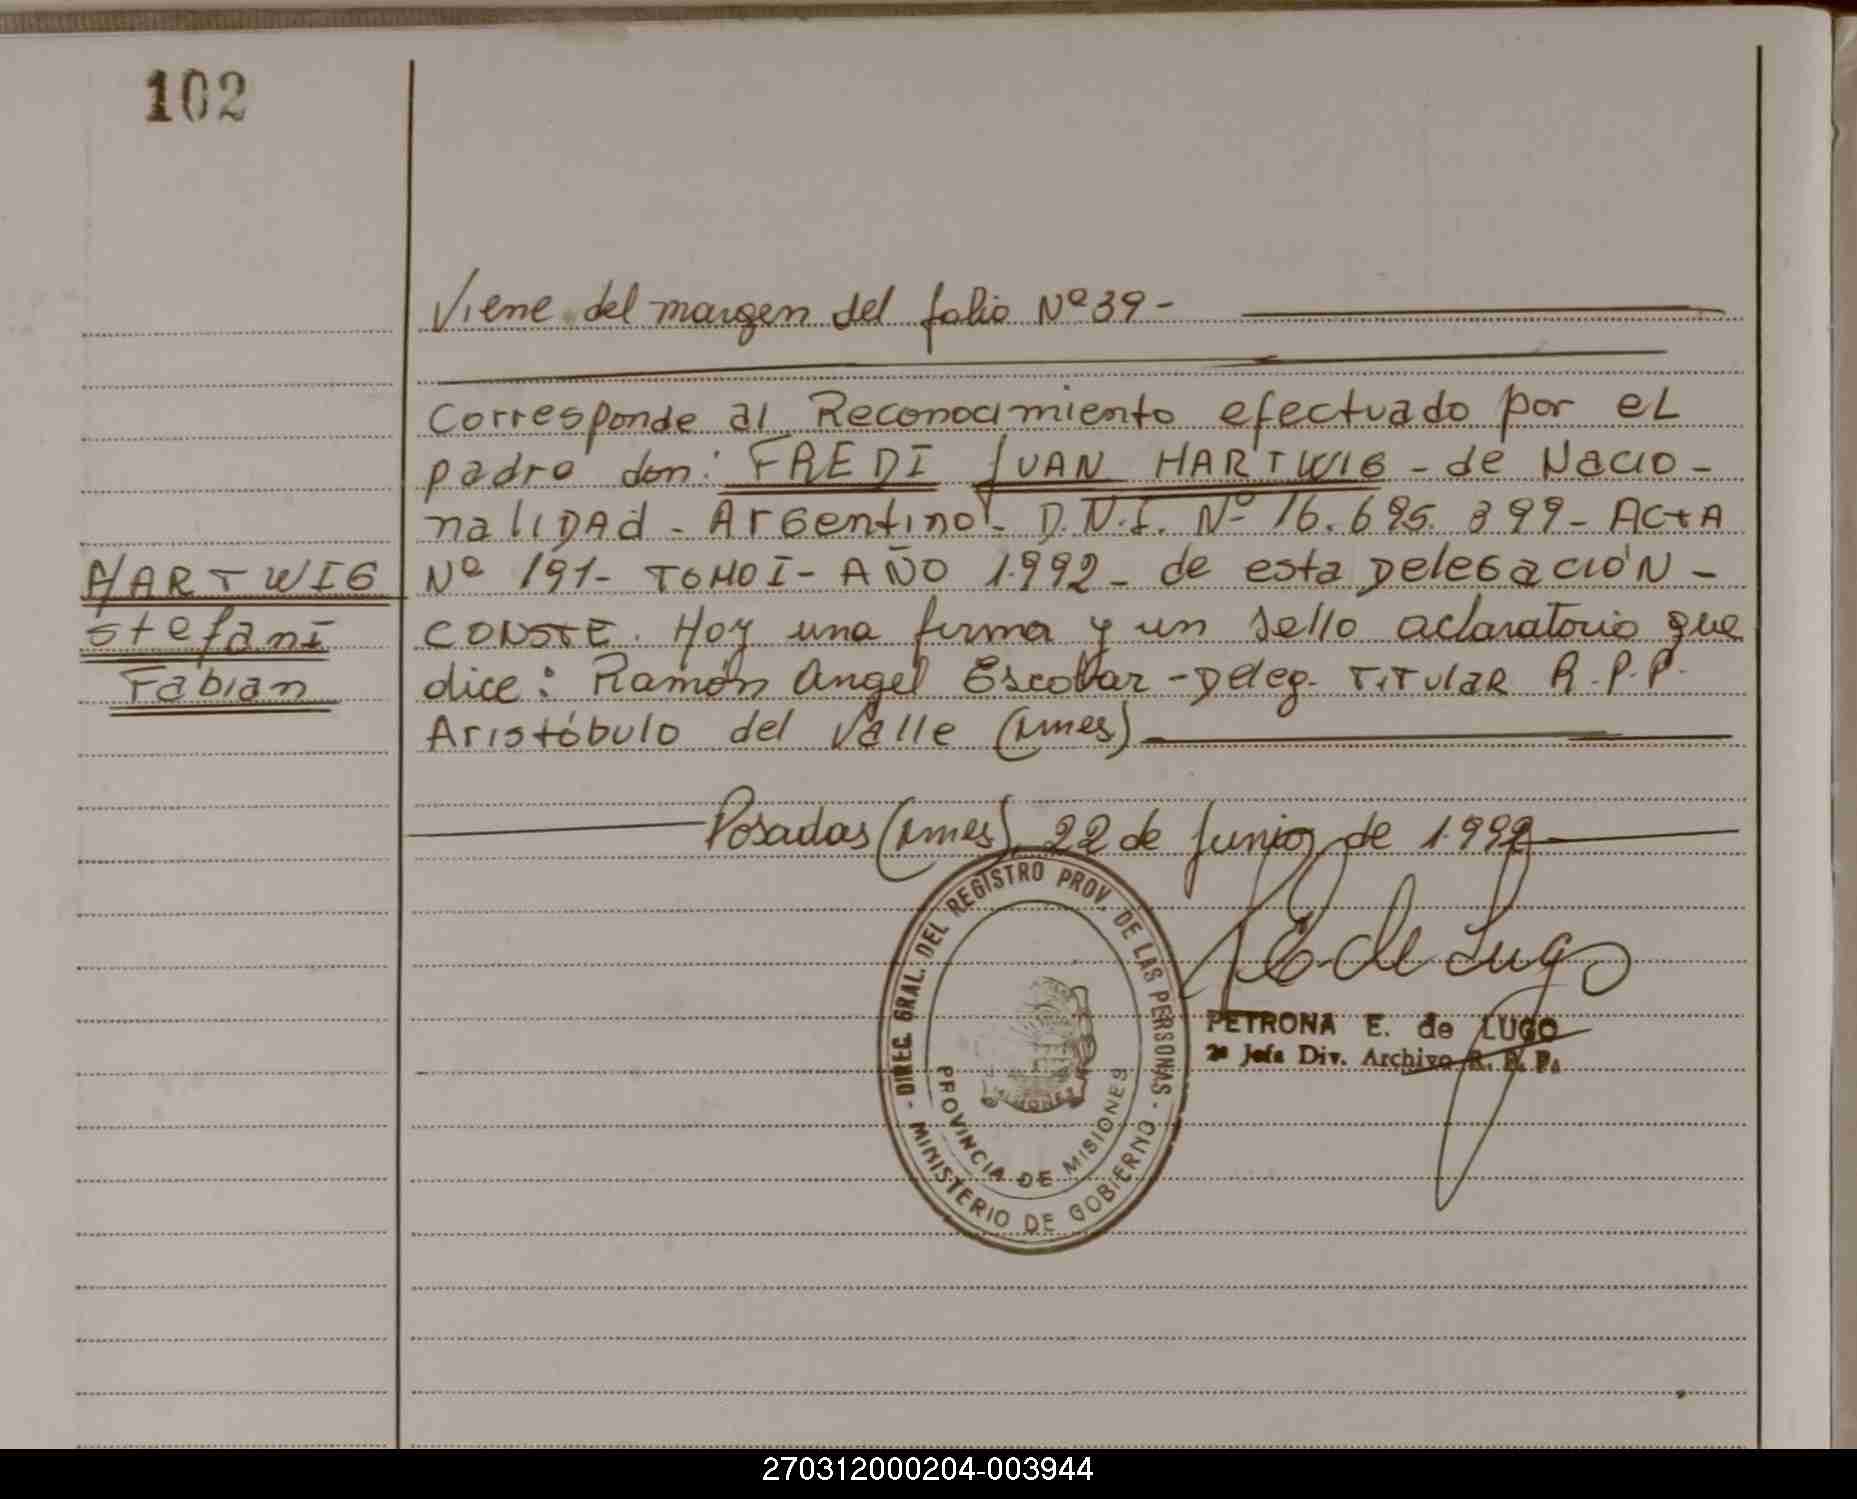 102
Viene del margen del folio Nº 39-
Corresponde al Reconocimiento efectuado por el
padre don: FREDI JUAN HARTWIG - de Nacio-
nalIDAd - Argentino - D.N.I. Nº 16.695.399 - ACTA
Nº 191 - TOMO I - AÑO 1.992 - de esta Delegación -
CONSTE. Hoy una firma y un sello aclaratorio que
dice: Ramón Angel Escobar - Deleg. Titular R.P.P.
Aristóbulo del Valle (Mnes)
HARTWIG
Stefani
Fabian
Posadas (Mnes), 22 de Junio de 1.992
P E. de Lugo
PETRONA E. de LUGO
2ª Jefa Div. Archivo R. P. P.
- DIREC. GRAL. DEL REGISTRO PROV. DE LAS PERSONAS -
MINISTERIO DE GOBIERNO
PROVINCIA DE MISIONES
MISIONES
270312000204-003944